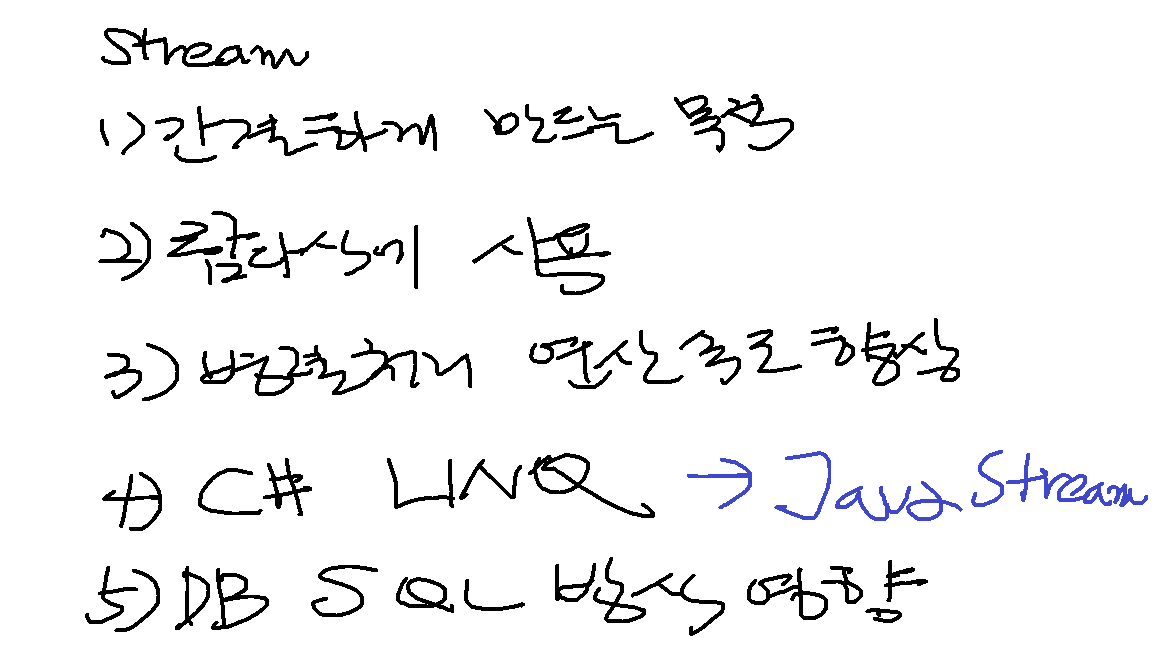 Stream
1) 간결하게 만드는 목적
2) 람다식기 사용
3) 병렬처리 연산속도 향상
4) C# LINQ → Java Stream
5) DB SQL 방식 영향